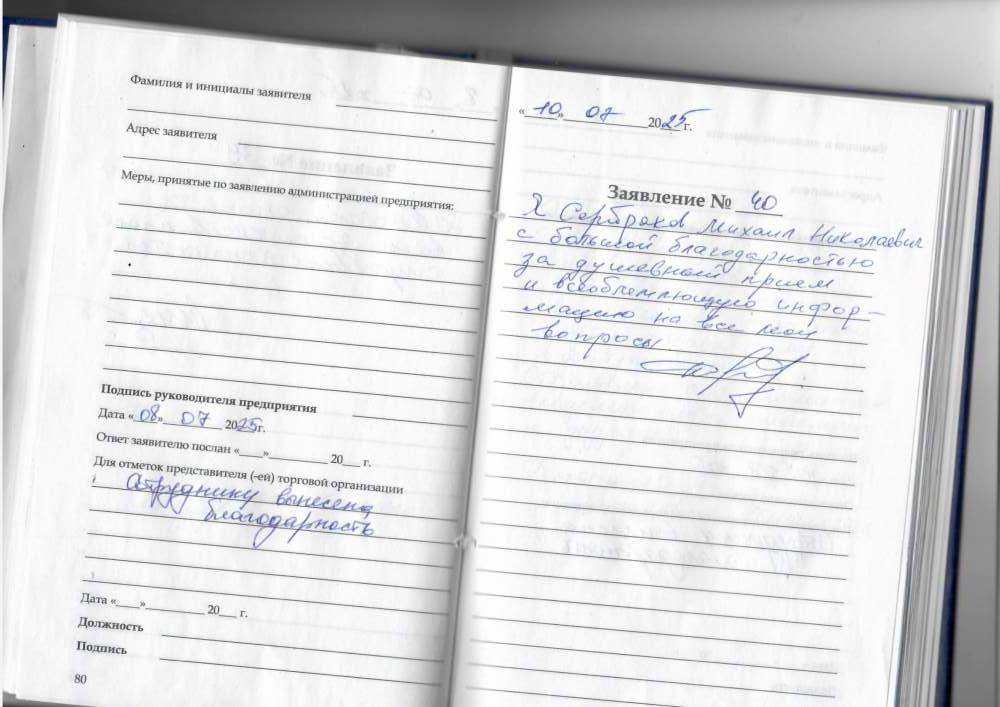 Фамилия и инициалы заявителя
Адрес заявителя
Меры, принятые по заявлению администрацией предприятия:
Подпись руководителя предприятия
Дата «08» 07 2025г.
Ответ заявителю послан «___»__________ 20___ г.
Для отметок представителя (-ей) торговой организации
Сотруднику вынесена
благодарность
Дата «____»__________ 20___ г.
Должность
Подпись
80
«10» 07 2025 г.
Заявление № 40
Я Сербряков Михаил Николаевич
с большой благодарностью
за душевный прием
и всеоблемлющую инфор-
мацию на все мои
вопросы